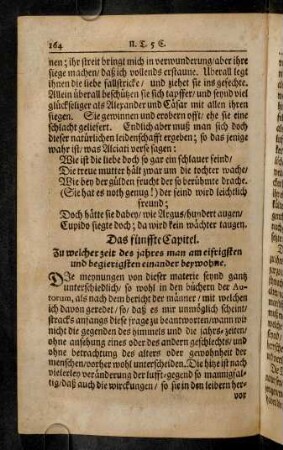 164 II. T. 5 C.
nen; ihr streit bringt mich in verwunderung/aber ihre
siege machen/ daß ich vollends erstaune. Uberall legt
ihnen die liebe fallstricke/ und ziehet sie ins gefechte.
Allein überall beschützen sie sich tapffer/ und seynd viel
glückseliger als Alexander und Cäsar mit allen ihren
siegen. Sie gewinnen und erobern offt/ ehe sie eine
schlacht geliefert. Endlich aber muß man sich doch
dieser natürlichen leidenschafft ergeben; so das jenige
wahr ist/ was Alciati verse sagen:
Wie ist die liebe doch so gar ein schlauer feind/
Die treue mutter hält zwar um die tochter wache/
Wie bey der gülden frucht der so berühmte drache.
(Sie hat es noth genug!) der feind wird leichtlich
freund;
Doch hätte sie dabey/ wie Argus/ hundert augen/
Cupido siegte doch; da wird kein wächter taugen.
Das fünffte Capitel.
Zu welcher zeit des jahres man am eifrigsten
und begierigsten einander beywohne.
DIe meynungen von dieser materie seynd gantz
unterschiedlich/ so wohl in den büchern der Au-
torum, als nach dem bericht der männer/ mit welchen
ich davon geredet/ so/ daß es mir unmöglich schein/
stracks anfangs diese frage zu beantworten/ wann wir
nicht die gegenden des himmels und die jahrs-zeiten/
ohne ansehung eines oder des andern geschlechts/ und
ohne betrachtung des alters oder gewohnheit der
menschen/ vorher wohl unterscheiden. Die hitze ist nach
vielerley veränderung der lufft-gegend so mannigfal-
tig/ daß auch die wirckungen/ so sie in den leibern her-
vor